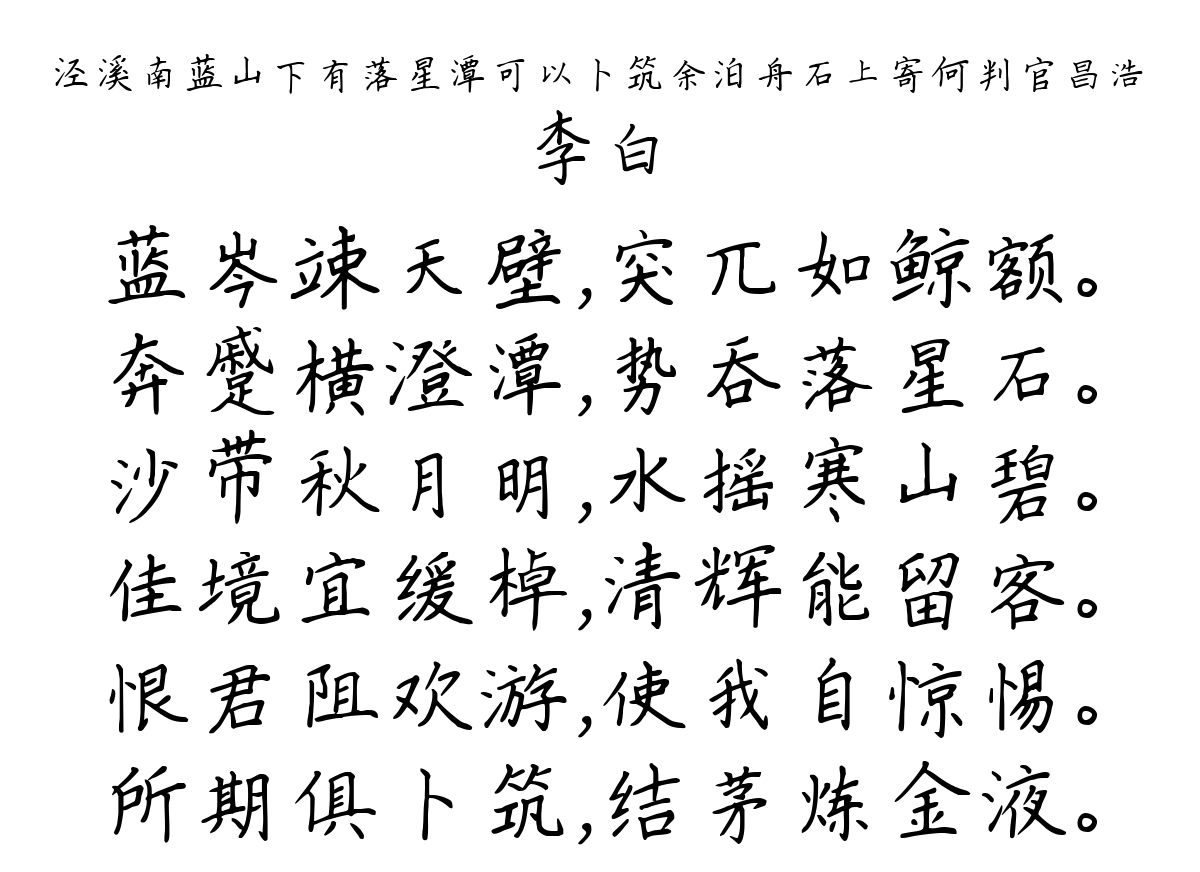 泾溪南蓝山下有落星潭可以卜筑余泊舟石上寄何判官昌浩
李白
蓝岑竦天壁,突兀如鲸额。
奔蹙横澄潭,势吞落星石。
沙带秋月明,水摇寒山碧。
佳境宜缓棹,清辉能留客。
恨君阻欢游,使我自惊惕。
所期俱卜筑,结茅炼金液。